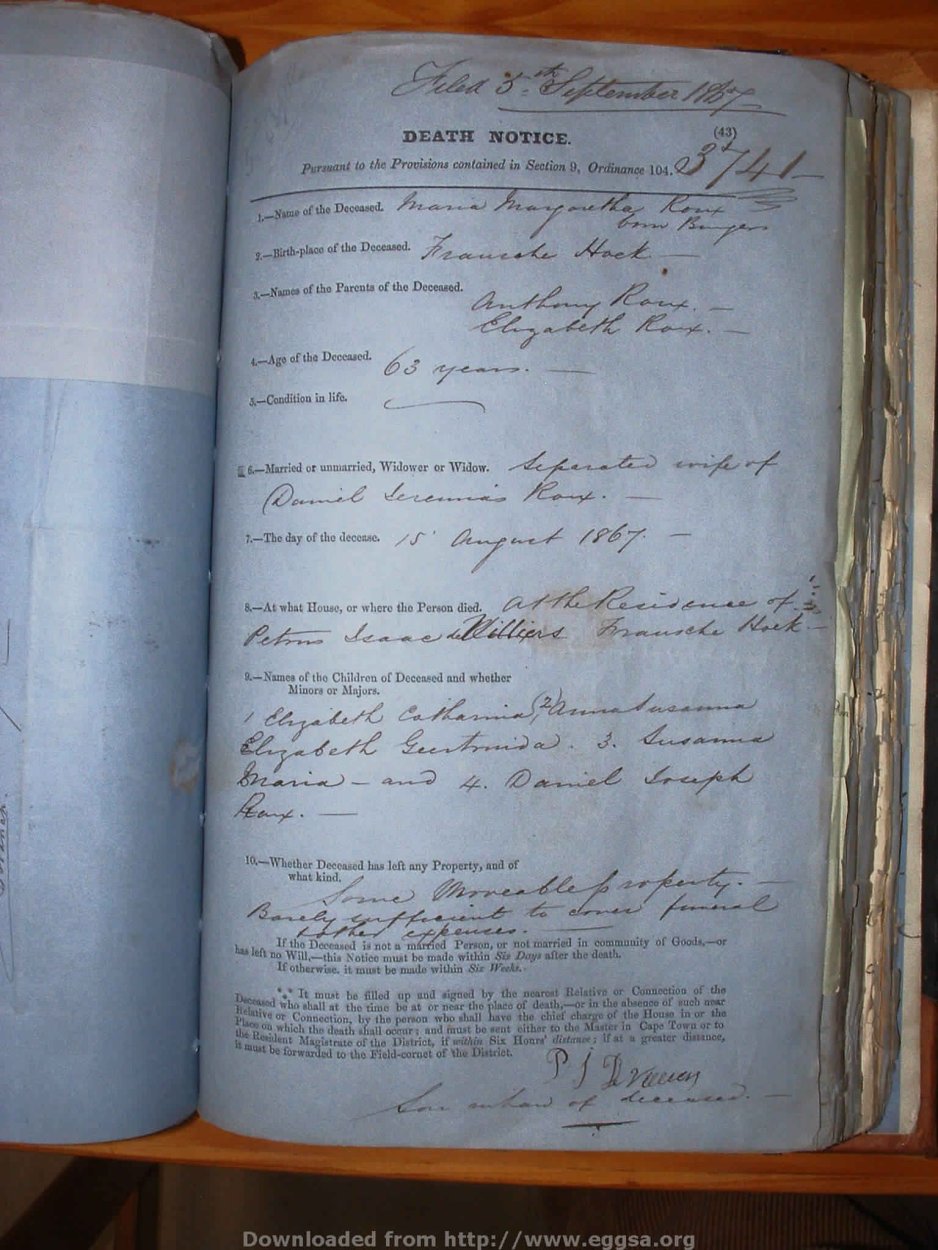 Filed 5th September 1867
DEATH NOTICE.
(43)
Pursuant to the Provisions contained in Section 9, Ordinance 104.
3741
1.—Name of the Deceased. Maria Margaretha Roux
born
2.—Birth-place of the Deceased. Fransche Hoek —
3.—Names of the Parents of the Deceased.
Anthony Roux. —
Elizabeth Roux. —
4.—Age of the Deceased. 63 years. —
5.—Condition in life.
6.—Married or unmarried, Widower or Widow. Separated wife of
Daniel Jeremias Roux. —
7.—The day of the decease. 15 August 1867. —
8.—At what House, or where the Person died. At the Residence of
Petrus Isaac de Villiers Fransche Hoek —
9.—Names of the Children of Deceased and whether
Minors or Majors.
1 Elizabeth Catharina, 2) Anna Susanna
Elizabeth Geertruida. 3. Susanna
Maria — and 4. Daniel Joseph
Roux. —
10.—Whether Deceased has left any Property, and of
what kind.
Some Moveable property. —
Barely sufficient to cover funeral
& other expenses. —
If the Deceased is not a married Person, or not married in community of Goods,—or
has left no Will,—this Notice must be made within Six Days after the death.
If otherwise, it must be made within Six Weeks.
*** It must be filled up and signed by the nearest Relative or Connection of the
Deceased who shall at the time be at or near the place of death,—or in the absence of such near
Relative or Connection, by the person who shall have the chief charge of the House in or the
Place on which the death shall occur; and must be sent either to the Master in Cape Town or to
the Resident Magistrate of the District, if within Six Hours' distance; if at a greater distance,
it must be forwarded to the Field-cornet of the District.
P J
Son in law of deceased. —
Downloaded from http://www.eggsa.org